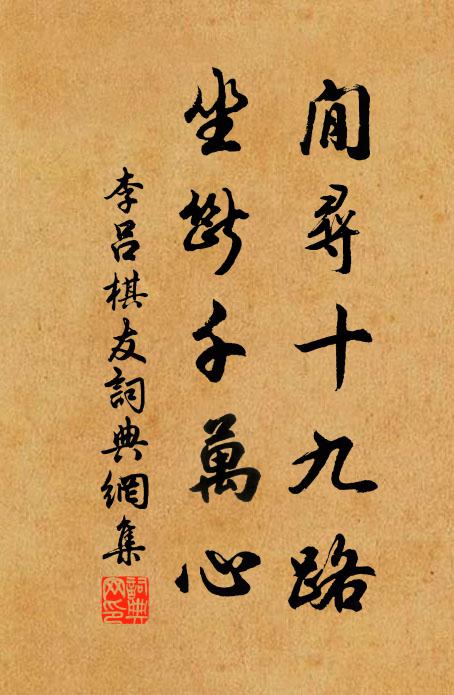 閒尋十九路
坐斷千萬心
李呂棋友詞典網集
詞典網印